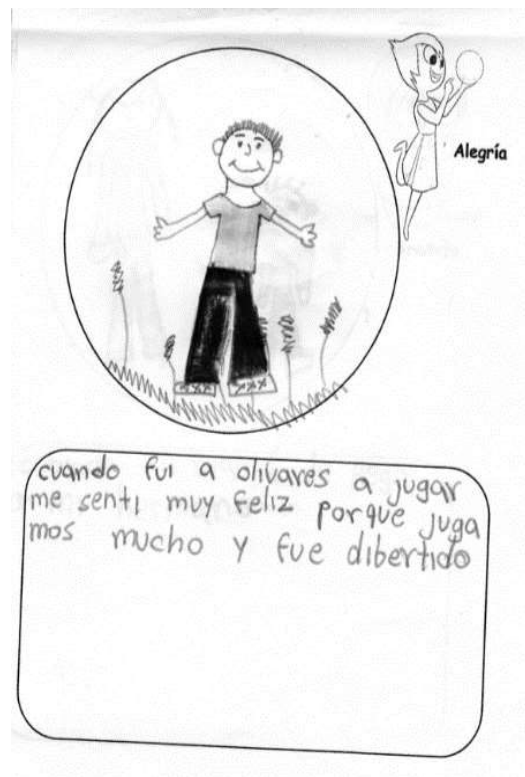 Alegría
cuando fui a olivares a jugar
me senti muy feliz porque juga
mos mucho y fue dibertido